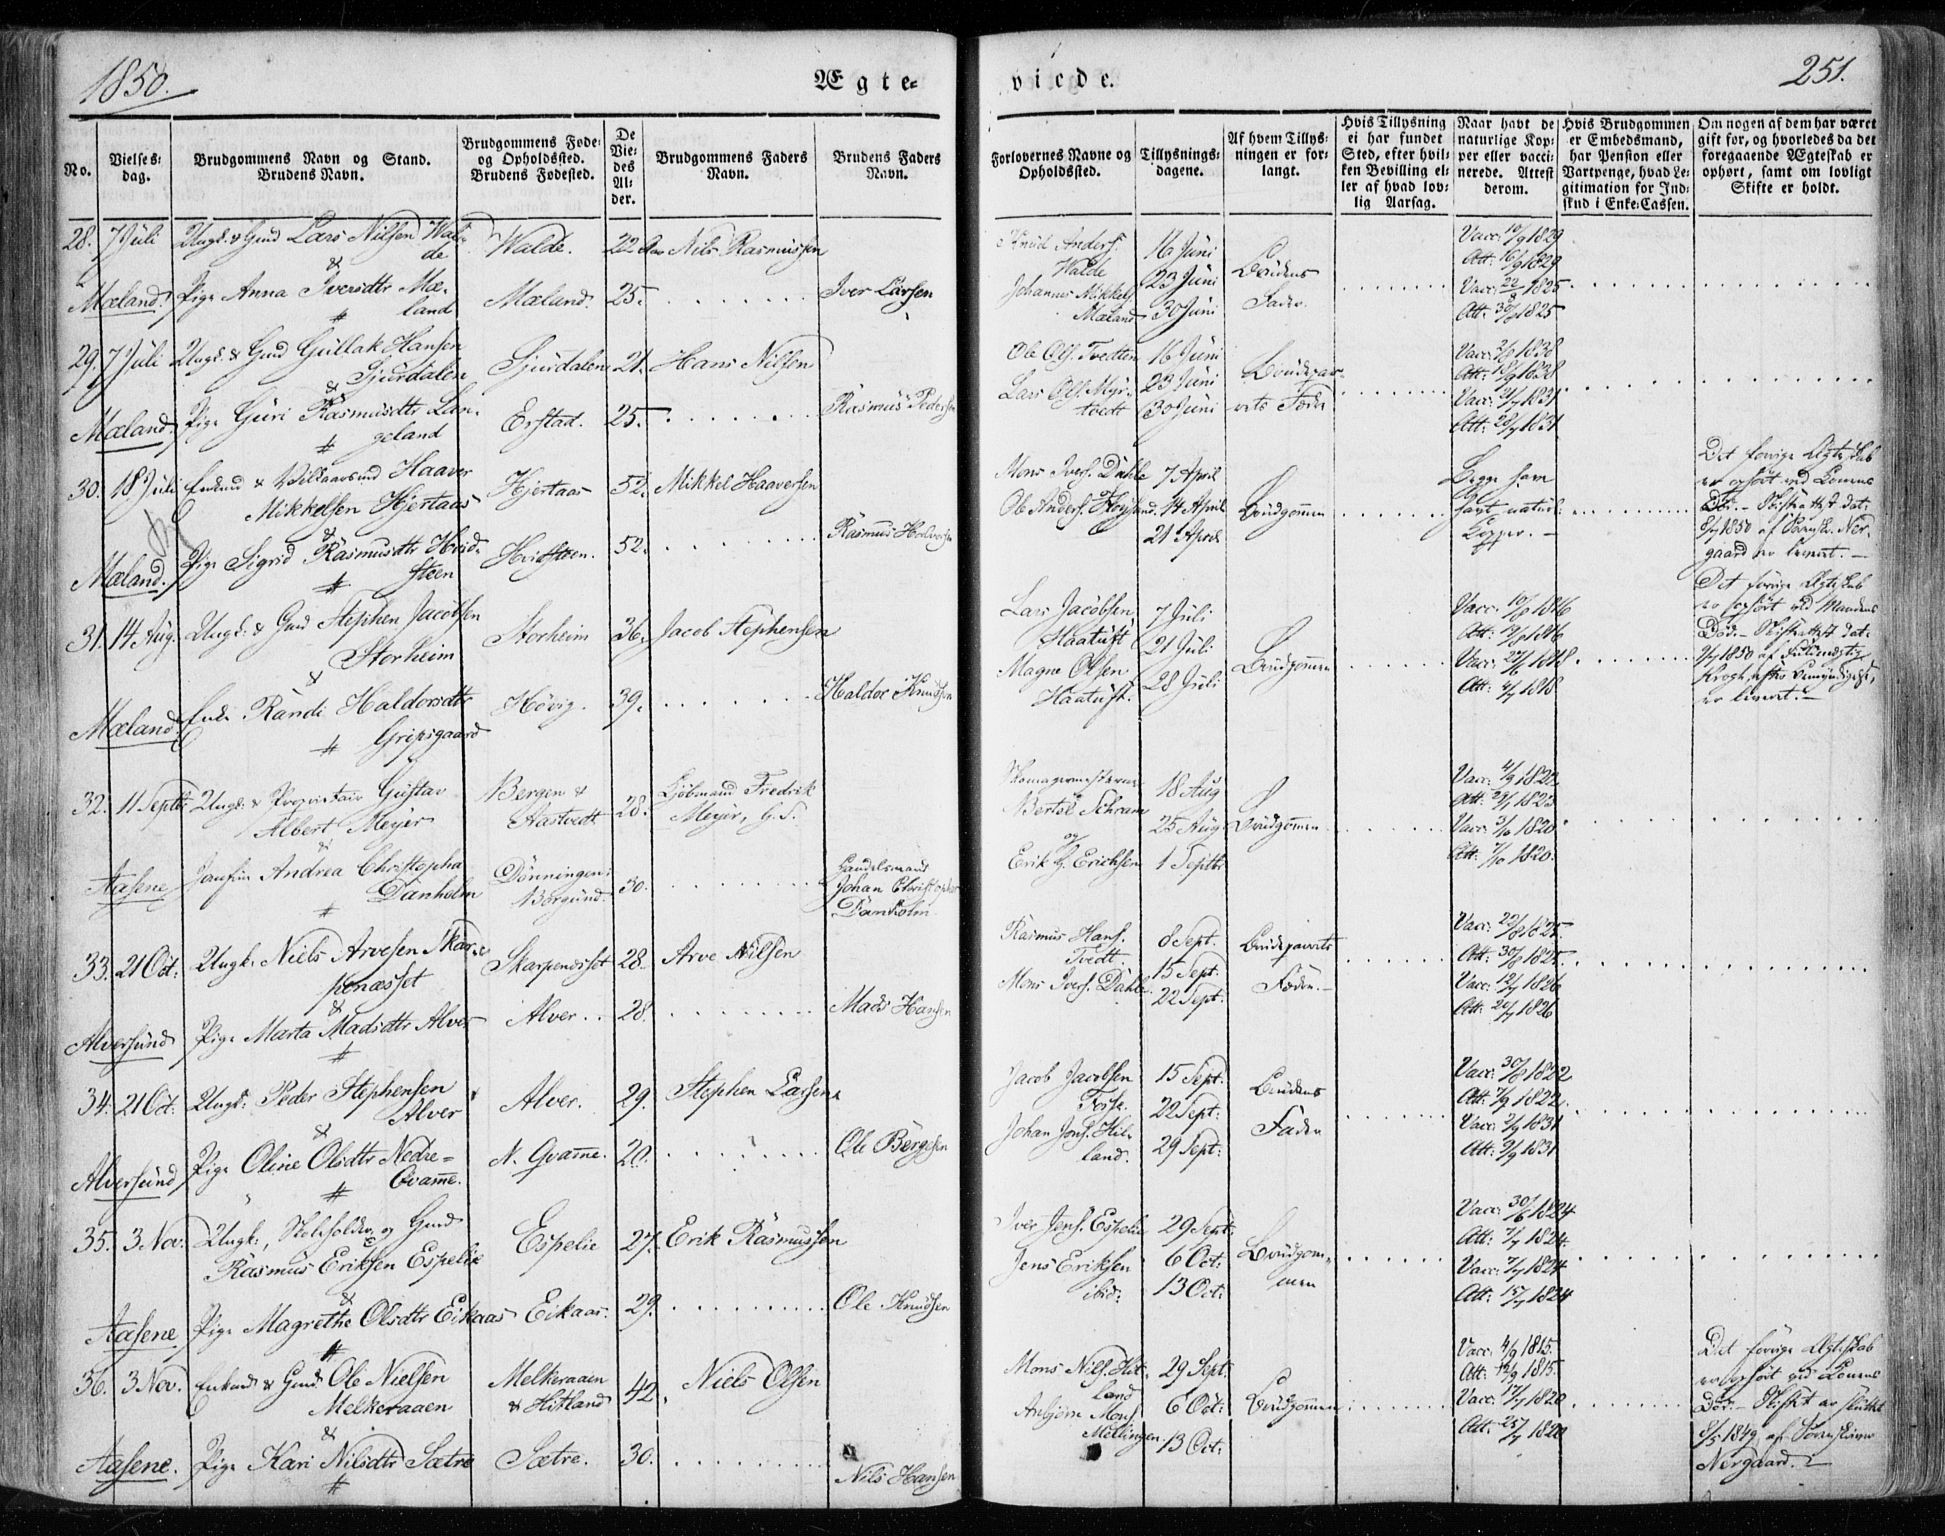 1850.
Ægte-
viede.
251.
No.
Vielses-
dag.
Brudgommens Navn og Stand.
Brudens Navn.
Brudgommens Føde-
og Opholdssted.
Brudens Fødested.
De
Vie-
des
Al-
der.
Brudgommens Faders
Navn.
Brudens Faders
Navn.
Forlovernes Navne og
Opholdssted.
Tillysnings-
dagene.
Af hvem Tillys-
ningen er for-
langt.
Hvis Tillysning
ei har fundet
Sted, efter hvil-
ken Bevilling el-
ler af hvad lov-
lig Aarsag.
Naar havt de
naturlige Kop-
per eller vacci-
nerede. Attest
derom.
Hvis Brudgommen
er Embedsmand,
har Pension eller
Vartpenge, hvad Le-
gitimation for Ind-
skud i Enke-Cassen.
Om nogen af dem har været
gift for, og hvorledes da det
foregaaende Ægteskab er
ophørt, samt om lovligt
Skifte er holdt.
28. 7 Juli Ungk. & Gmd Lars Nilsen Wal-
de Walde. 22 Nils Rasmussen
&
Mæland. Pige Anna Iversdtr Mæ-
land Mæland. 25. Iver Larsen
Knud Anders.
Walde
Johannes Mikkels.
Mæland
16 Juni
23 Juni
30 Juni
Brudens
Fader
Vacc: 10/9 1829
Att: 16/9 1829
Vacc: 22/8 1825
Att: 30/8 1825
29. 7 Juli Ungk. & Gmd Gullak Hansen
Sjurdalen Sjurdalen 21. Hans Nilsen
&
Mæland. Pige Guri Rasmusdtr Lan-
geland Erstad. 25. Rasmus Pedersen
Ole Ols. Tvedten
Lars Ols. Myr-
tvedt
16 Juni
23 Juni
30 Juni
Brudepar-
rets Fædre
Vacc: 3/9 1838
Att: 18/9 1838
Vacc: 21/7 1831
Att: 28/7 1831
30. 18 Juli Enkmd & Haaver
Mikkelsen Hjertaas Hjertaas 52. Mikkel Haaversen
&
Mæland. Pige Sigrid Rasmusdtr Hvid-
steen Hvidsteen. 52. Rasmus
Mons Ivers. Dahle
Ole Anders.
7 April
14 April
21 April
Brudgommen
Begge have
havt naturl:
Kopper. -
Det forrige Ægteskab
er ophørt ved Konens
Død. - Skifteattest dat:
1850 af Sorenskr. Ner-
gaard er leveret. -
31. 14 Aug. Ungk: & Gmd Stephen Jacobsen
Storheim Storheim 36. Jacob Stephensen
&
Mæland Enke Randi Haldorsdtr
Gripsgaard Høvig. 39. Haldor Knudsen
Lars Jacobsen
Haatuft
Magne Olsen
Haatuft.
7 Juli
21 Juli
28 Juli
Brudgommen
Vacc: 10/9 1816
Att: 19/9 1816
Vacc: 27/6 1818
Att: 4/7 1818
Det forrige Ægteskab
er ophørt ved Mandens
Død. - Skifteattest dat:
1850 af Fuldmægtig
Krogh,
er leveret. -
32. 11 Septbr Ungk. & Proprietair Gustav
Albert Meyer Bergen &
Hastvedt 28. Kjøbmand Fredrik
Meyer,
&
Aasene Jomfru Andrea Christopha
Danholm Dønningen:
Borgund. 30. Handelsmand
Johan Christopher
Danholm
Skomagermesterne
Bertel Schram
og
Erik Erichsen
18 Aug
25 Aug
1 Septbr
Brudgommen
Vacc: 4/9 1822
Att: 1823
Vacc: 3/10 1820
Att: 7/10 1820.
33. 21 Oct: Ungk: Niels Arvesen Skar-
penæsset Skarpenæsset 28. Arve Nilsen
&
Alversund Pige Marta Madsdtr Alver Alver. 28. Mads Hansen
Rasmus Hans.
Tvedt.
Mons Ivers. Dahle
8 Sept.
15 Sept:
22 Sept:
Brudeparrets
Fædre. -
Vacc: 22/8 1825.
Att: 30/8 1825.
Vacc: 12/7 1826
Att: 20/7 1826
34. 21 Oct: Ungk: Peder Stephensen
Alver Alver. 29. Stephen Larsen
&
Alversund Pige Oline Olsdtr Nedre-
Qvamme. N. Qvamme. 20. Ole Børgesen
Jacob Jacobsen
Fosse.
Johan Jons. Hil-
land.
15 Sept:
22 Sept:
29 Sept:
Brudens
Fader
Vacc: 30/8 1822
Att: 7/9 1822.
Vacc: 2/9 1831
Att: 9/9 1831
35. 3 Nov. Ungk:, Skoleholder og Gmd
Rasmus Eriksen Espelie Espelie 27. Erik Rasmussen
&
Aasene Pige Magrethe Olsdtr Eikaas Eikaas. 29. Ole Knudsen
Iver Jens. Espelie
Jens Eriksen
ibid:
29 Sept:
6 Oct:
13 Oct:
Brudgom-
men
Vacc: 30/6 1824
Att: 7/7 1824
Vacc: 7/7 1824
Att: 15/7 1824
36. 3 Nov. Enkmd & Gmd. Ole Nielsen
Melkeraaen Melkeraaen
& Hitland 42. Niels Olsen
&
Aasene. Pige Kari Nilsdtr Sætre Sætre. 30. Nils Hansen
Mons Niels. Hit-
land
Anbjørn Mons.
Mellingen
29 Sept.
6 Oct:
13 Oct:
Brudgommen
Vacc: 4/9 1815.
Att: 12/9 1815.
Vacc: 17/7 1820
Att: 25/7 1820
Det forrige Ægteskab
er ophørt ved Konens
Død. - Skiftet er sluttet
8/5 1849 af Sorenskriver
Nergaard. -